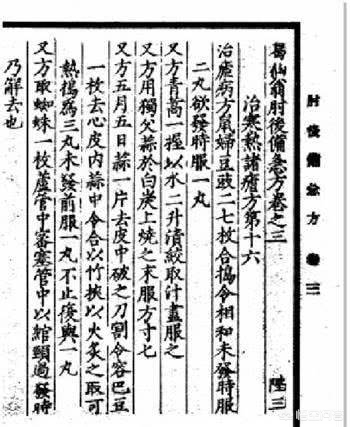 肘後備急方 卷三
陷三
葛仙翁肘後備急方卷之三
治寒熱諸瘧方第十六
治瘧病方鼠婦豆豉二七枚合搗令相和未發時服
二丸欲發時服一丸
又方青蒿一握以水二升漬絞取汁盡服之
又方用獨父蒜於白炭上燒之末服方寸匕
又方五月五日蒜一片去皮中破之刀割令容巴豆
一枚去心皮內蒜中令合以竹挾以火炙之取可
熱搗為三丸未發前服一丸不止復與一丸
又方取蜘蛛一枚蘆管中密塞管中以綰頸過發時
乃解去也